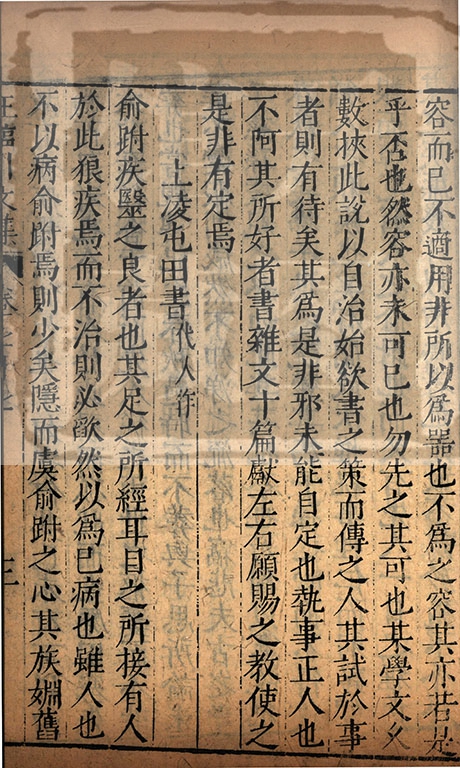 容而已不適用非所以爲噐也不爲之容其亦若是
乎否也然容亦未可已也勿先之其可也某學文乆
數挾此說以自治始欲書之策而傳之人其試於事
者則有待矣其爲是非邪未能自定也執事正人也
不阿其所好者書雜文十篇獻左右願賜之教使之
是非有定焉
上凌屯田書代人作
俞跗疾毉之良者也其足之所經耳目之所接有人
於此狼疾焉而不治則必歉然以爲已病也雖人也
不以病俞跗焉則少矣隱而虞俞跗之心其族婣舊
王臨川文集 卷之
三